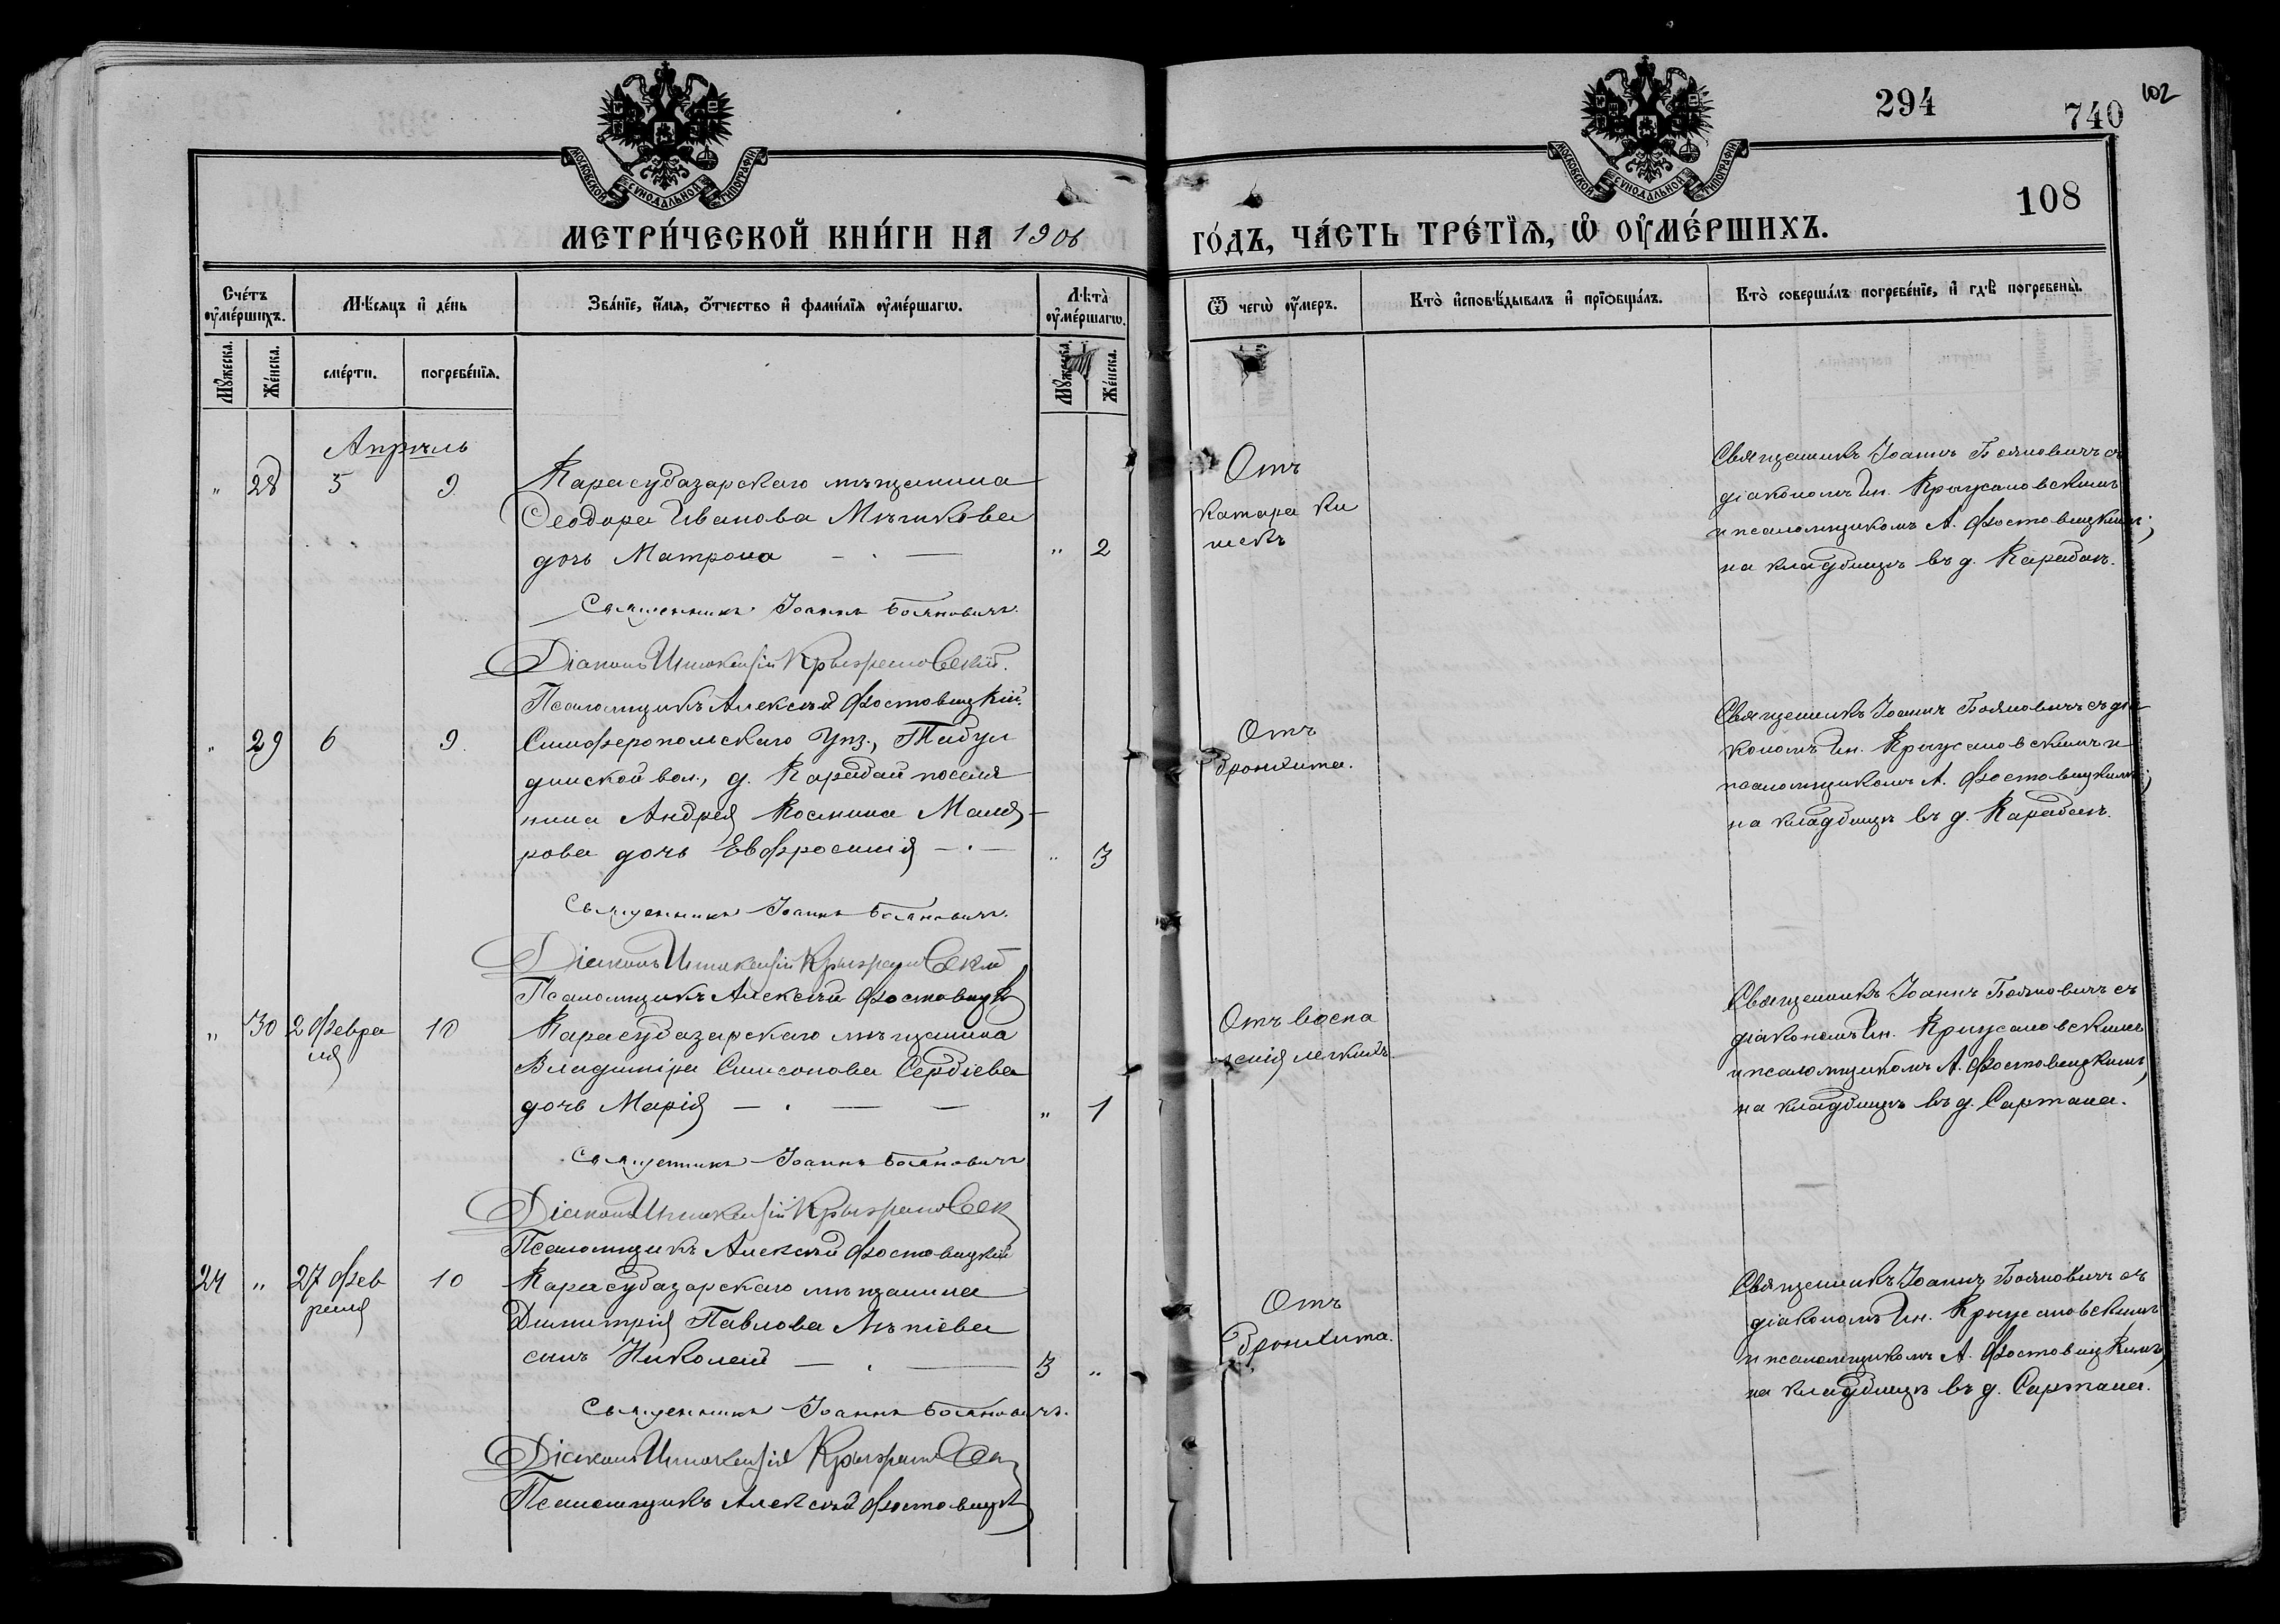 294
740
102
108
МОСКОВСКОЙ СѴНОДАЛЬНОЙ ТИПОГРАФІИ
МОСКОВСКОЙ СѴНОДАЛЬНОЙ ТИПОГРАФІИ
МЕТРИ́ЧЕСКОЙ КНИ́ГИ НА 1906
ГО́ДЪ, ЧА́СТЬ ТРЕ́ТЇѦ, Ѡ҆ ОУ҆МЕ́РШИХЪ.
Сче́тъ оу҆ме́ршихъ.
Мꙋ́жеска.
Же́нска.
Мѣ́сяцъ и҆ де́нь
сме́рти.
погребе́нїѧ.
Зва́нїе, и҆́мѧ, ѻ҆́тчество и҆ фами́лїѧ оу҆ме́ршагѡ.
Лѣ́та оу҆ме́ршагѡ.
Мꙋ́жеска.
Же́нска.
Ѿ чегѡ̀ оу҆́меръ.
Кто̀ и҆сповѣ́дывалъ и҆ прїѡбща́лъ.
Кто̀ соверша́лъ погребе́нїе, и҆ гдѣ̀ погребены̀.
Апрѣль
" 28 5 9 Карасубазарскаго мѣщанина
Ѳеодора Иванова Мѣчикова
дочь Матрона — . — " 2
Священникъ Іоаннъ Бояновичъ.
Діаконъ Иннокентій Крыжановскій.
Псаломщикъ Алексѣй Фостовицкій.
Отъ
катара ки
шекъ
Священникъ Іоаннъ Бояновичъ съ
діакономъ Ин. Крыжановскимъ
и псаломщикомъ А. Фостовицкимъ;
на кладбищѣ въ д. Карабаѣ.
" 29 6 9 Симферопольскаго Уѣз., Табул
динской вол., д. Карабай поселя
нина Андрея Косьмина Маля-
рова дочь Евфросинія — . — " 3
Священникъ Іоаннъ Бояновичъ.
Діаконъ Иннокентій Крыжановскій
Псаломщикъ Алексѣй Фостовицкій
Отъ
бронхита.
Священникъ Іоаннъ Бояновичъ съ діа
кономъ Ин. Крыжановскимъ и
псаломщикомъ А. Фостовицкимъ;
на кладбищѣ въ д. Карабаѣ.
" 30 2 Февра 10 Карасубазарскаго мѣщанина
ля Владиміра Симеонова Сердіева
дочь Марія — . — — " 1
Священникъ Іоаннъ Бояновичъ
Діаконъ Иннокентій Крыжановск
Псаломщикъ Алексѣй Фостовицкій
Отъ воспа
ленія легкихъ.
Священникъ Іоаннъ Бояновичъ съ
діакономъ Ин. Крыжановскимъ
и псаломщикомъ А. Фостовицкимъ,
на кладбищѣ въ д. Сартана.
24 " 27 Фев 10 Карасубазарскаго мѣщанина
раля Димитрія Павлова
сынъ Николай — . — 3 "
Священникъ Іоаннъ Бояновичъ.
Діаконъ Иннокентій Крыжановск
Псаломщикъ Алексѣй Фостовицк
Отъ
бронхита.
Священникъ Іоаннъ Бояновичъ съ
діакономъ Ин. Крыжановскимъ
и псаломщикомъ А. Фостовицкимъ,
на кладбищѣ въ д. Сартана.